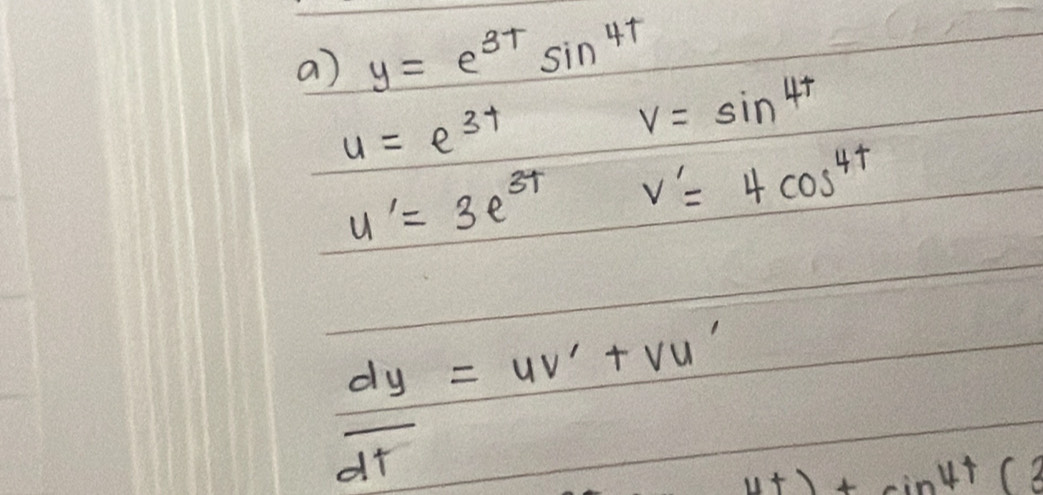 a) y = e^{3t} sin^{4t}
u = e^{3t} v = sin^{4t}
u' = 3e^{3t} v' = 4 cos^{4t}
dy/dt = uv' + vu'
4t) + sin^{4t} (3